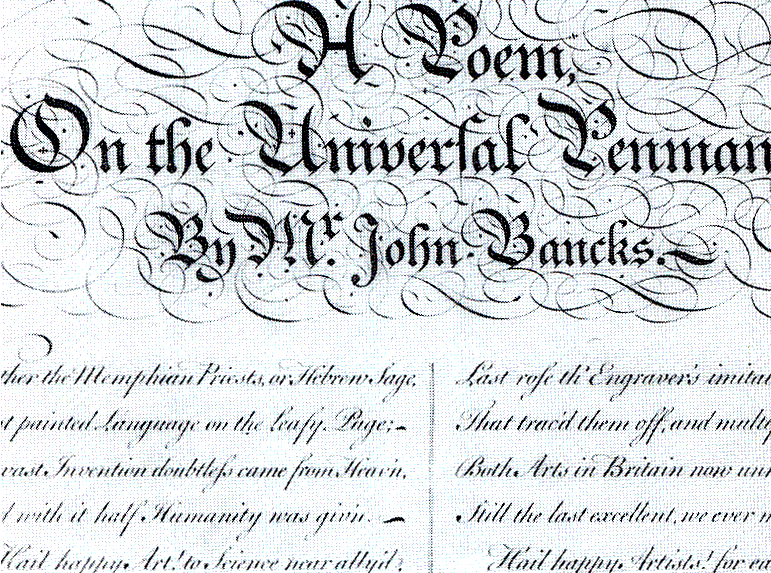 A Poem,
On the Univerſal Penman
By Mr. John Bancks.
ther the Memphian Prieſts, or Hebrew Sage,
t painted Language on the leafy Page;
vast Invention doubtleſs came from Heav'n,
d with it half Humanity was giv'n.
Hail happy Art! to Science near ally'd;
Laſt roſe th' Engraver's imitat
That trac'd them off, and multip
Both Arts in Britain now
Still the last excellent, we ever
Hail happy Artists! for